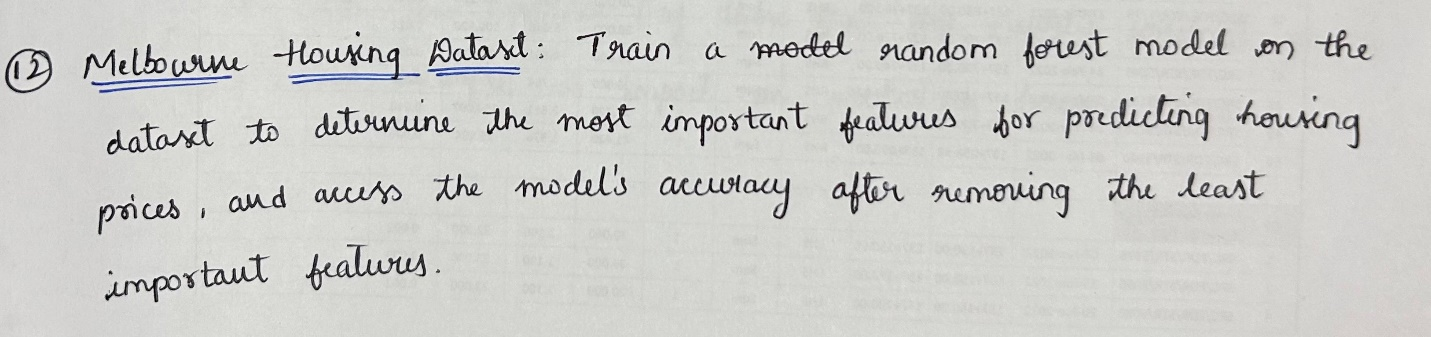 (12) Melbourne Housing Dataset: Train a model random forest model on the
dataset to determine the most important features for predicting housing
prices, and access the model's accuracy after removing the least
important features.